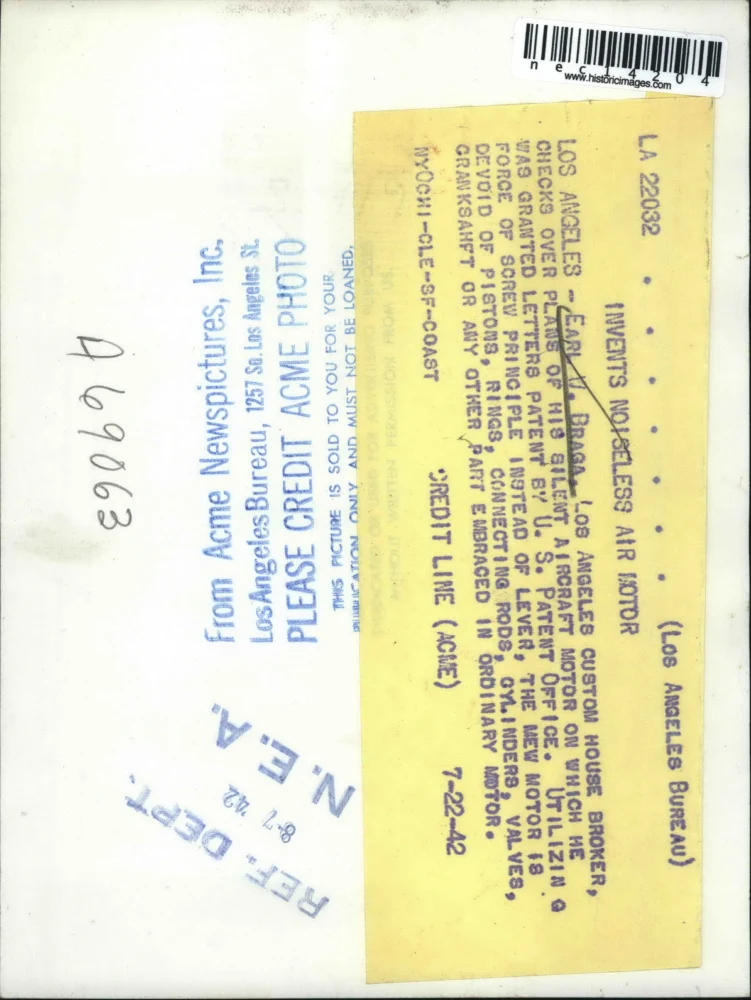 nec14204
www.historicimages.com
LA 22032 . . . . . . . (LOS ANGELES BUREAU)
INVENTS NOISELESS AIR MOTOR
LOS ANGELES - EARL V. BRAGA, LOS ANGELES CUSTOM HOUSE BROKER,
CHECKS OVER PLANS OF HIS SILENT AIRCRAFT MOTOR ON WHICH HE
WAS GRANTED LETTERS PATENT BY U. S. PATENT OFFICE. UTILIZIN G
FORCE OF SCREW PRINCIPLE INSTEAD OF LEVER, THE MEW MOTOR IS
DEVOID OF PISTONS, RINGS, CONNECTING RODS, CYLINDERS, VALVES,
CRANKSAHFT OR ANY OTHER PART EMBRACED IN ORDINARY MOTOR.
NYOCHI-CLE-SF-COAST CREDIT LINE (ACME) 7-22-42
From Acme Newspictures, Inc.
Los Angeles Bureau, 1257 So. Los Angeles St.
PLEASE CREDIT ACME PHOTO
THIS PICTURE IS SOLD TO YOU FOR YOUR
PUBLICATION ONLY AND MUST NOT BE LOANED,
SYNDICATED OR USED FOR ADVERTISING PURPOSES
WITHOUT WRITTEN PERMISSION FROM US.
REF. DEPT.
8-7 '42
N.E.A.